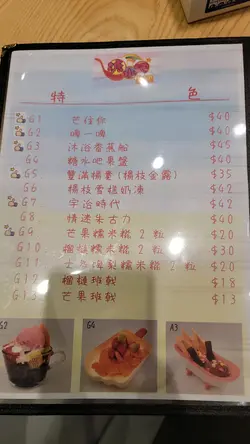 特 色
G1 芒往你 $40
G2 嗨一嗨 $40
G3 沐浴香蕉船 $45
G4 糖水吧果盤 $40
G5 豐滿楊妻(楊枝金露) $35
G6 楊枝香搵奶凍 $42
G7 宇治時代 $42
G8 情迷朱古力 $40
G9 芒果糯米糍 2 粒 $20
G10 榴槤糯米糍 2 粒 $30
G11 士多啤梨糯米糍 2 粒 $20
G12 榴槤班戟 $18
G13 芒果班戟 $13
G2
G4
A3